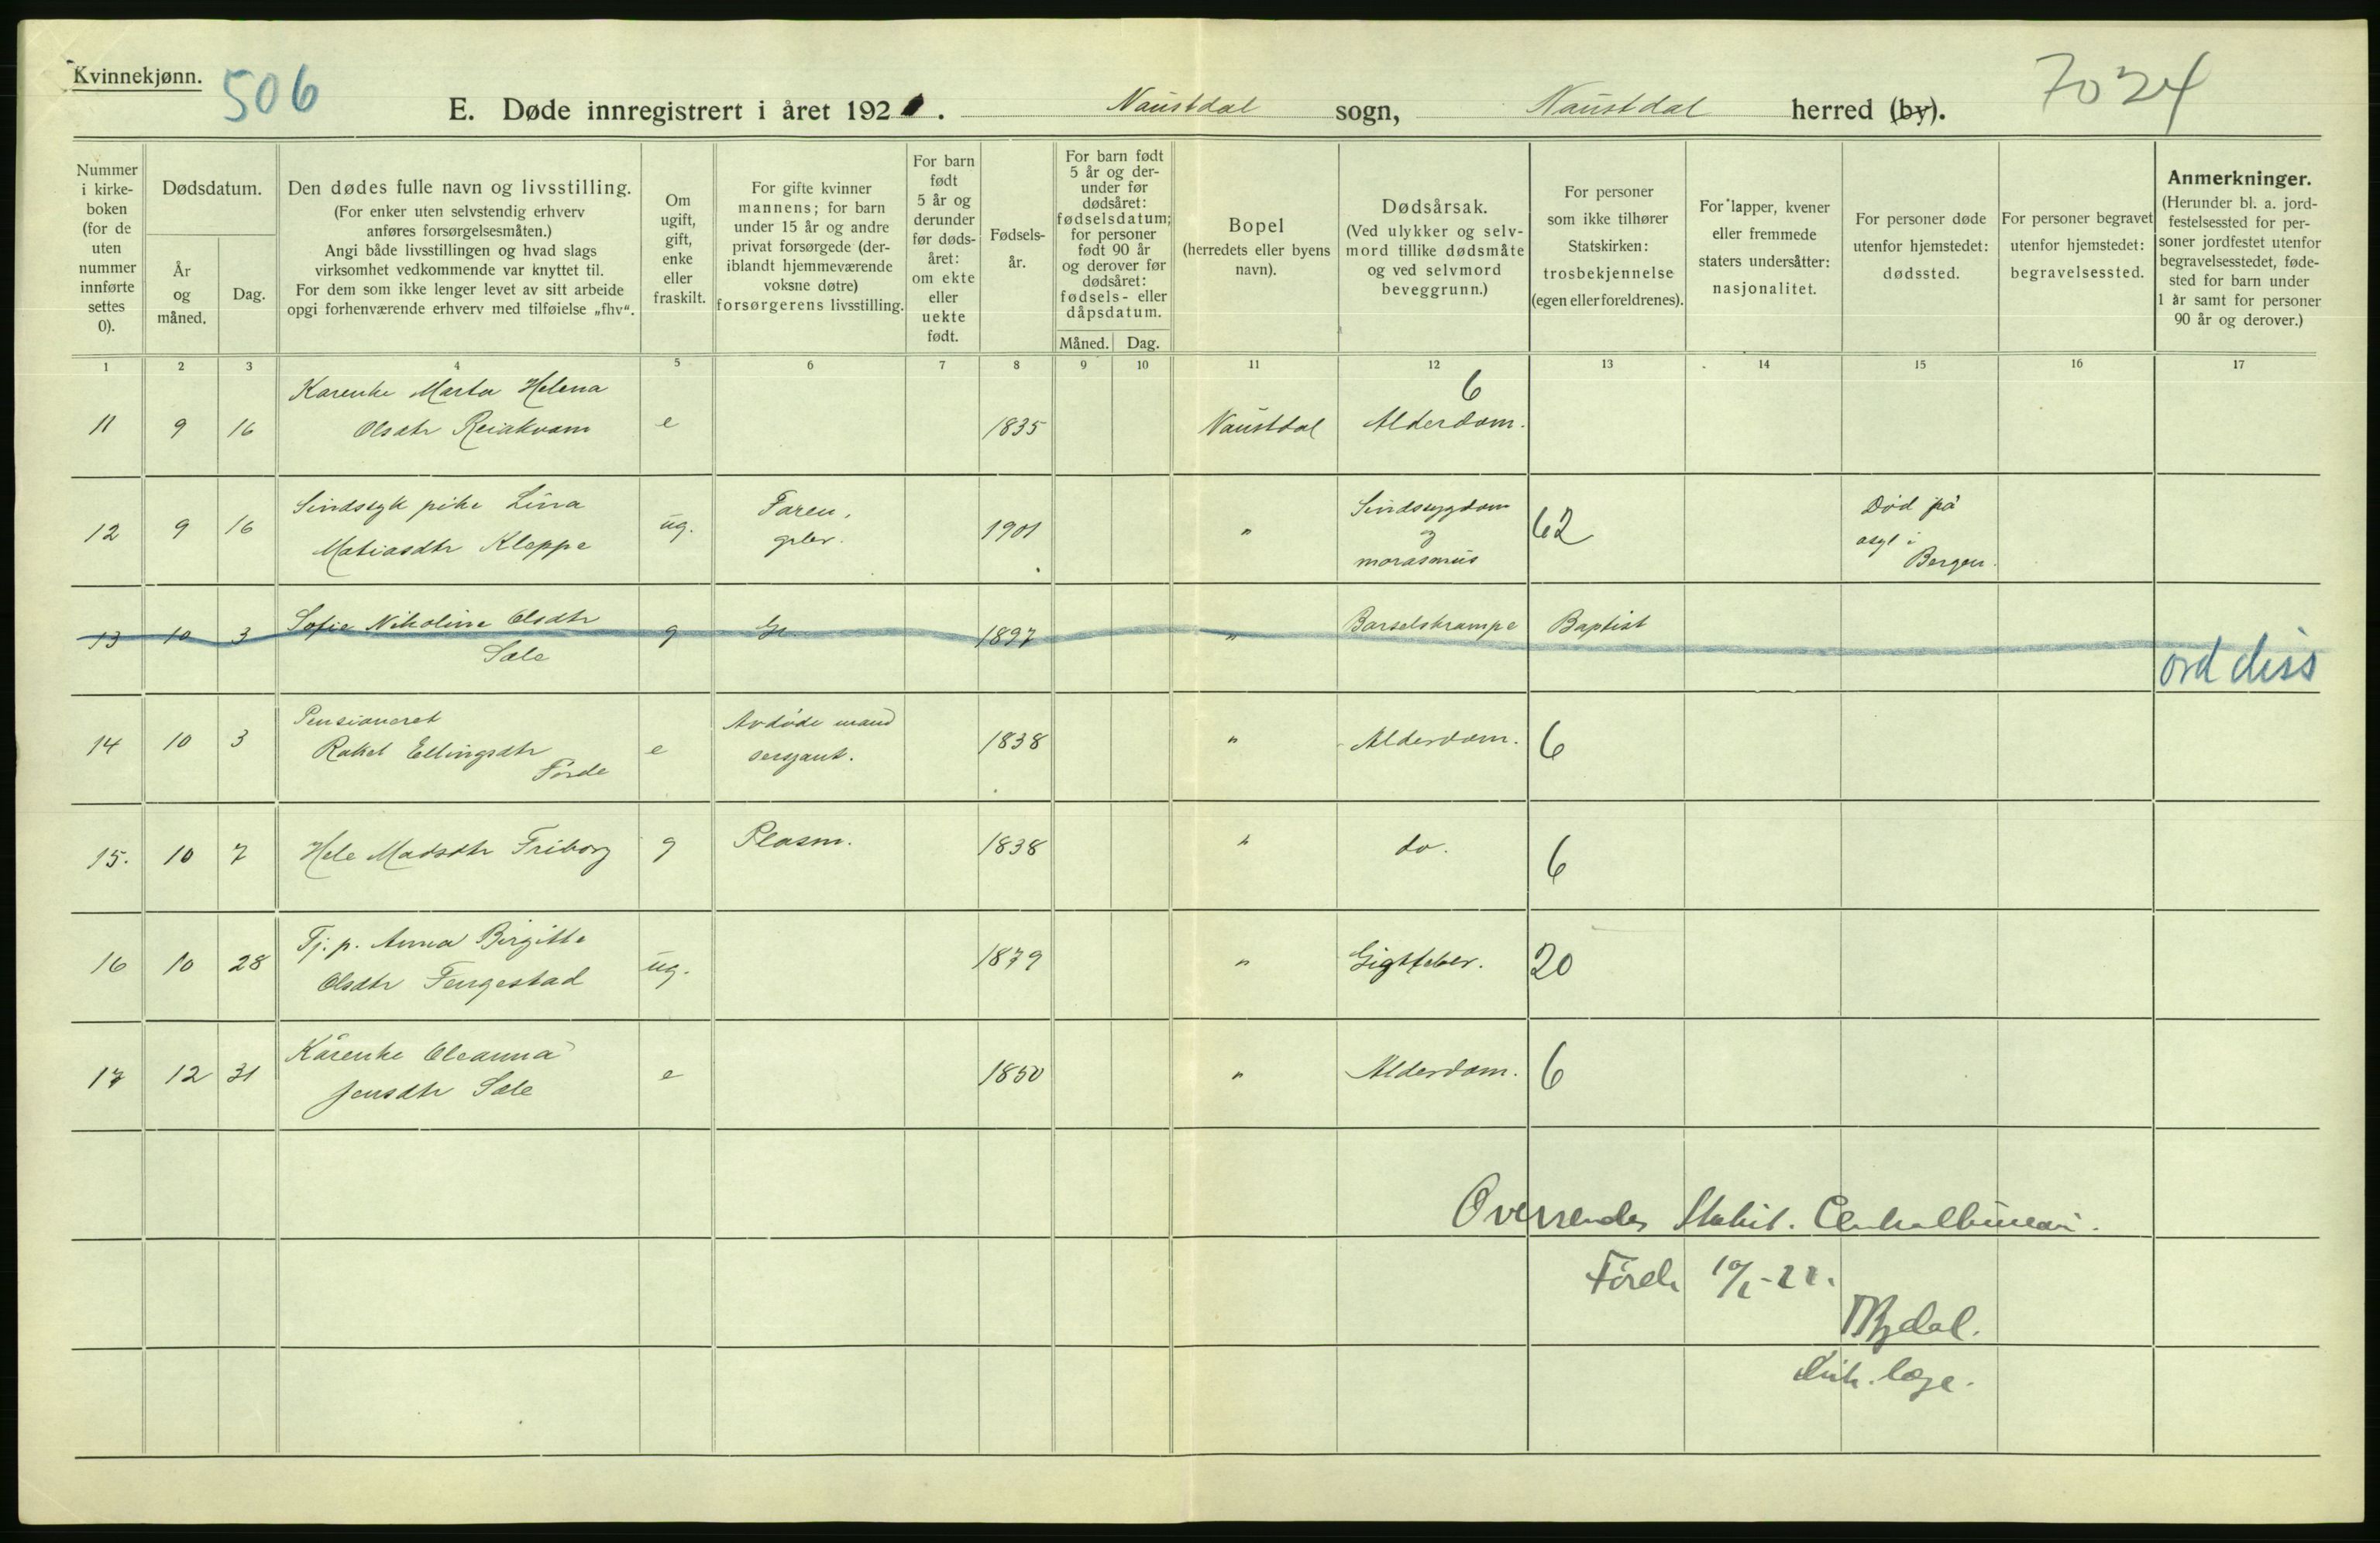 Kvinnekjønn.
506
E. Døde innregistrert i året 192 . Naustdal sogn, Naustdal herred (by).
7024
Nummer i kirkeboken (for de uten nummer innførte settes 0).
Dødsdatum.
År og måned.
Dag.
Den dødes fulle navn og livsstilling.
(For enker uten selvstendig erhverv
anføres forsørgelsesmåten.)
Angi både livsstillingen og hvad slags
virksomhet vedkommende var knyttet til.
For dem som ikke lenger levet av sitt arbeide
opgi forhenværende erhverv med tilføielse „fhv“.
Om
ugift,
gift,
enke
eller
fraskilt.
For gifte kvinner
mannens; for barn
under 15 år og andre
privat forsørgede (der-
iblandt hjemmeværende
voksne døtre)
forsørgerens livsstilling.
For barn
født
5 år og
derunder
før døds-
året:
om ekte
eller
uekte
født.
Fødsels-
år.
For barn født
5 år og der-
under før
dødsåret:
fødselsdatum;
for personer
født 90 år
og derover før
dødsåret:
fødsels- eller
dåpsdatum.
Måned. Dag.
Bopel
(herredets eller byens
navn).
Dødsårsak.
(Ved ulykker og selv-
mord tillike dødsmåte
og ved selvmord
beveggrunn.)
For personer
som ikke tilhører
Statskirken:
trosbekjennelse
(egen eller foreldrenes).
For lapper, kvener
eller fremmede
staters undersåtter:
nasjonalitet.
For personer døde
utenfor hjemstedet:
dødssted.
For personer begravet
utenfor hjemstedet:
begravelsessted.
Anmerkninger.
(Herunder bl. a. jord-
festelsessted for per-
soner jordfestet utenfor
begravelsesstedet, føde-
sted for barn under
1 år samt for personer
90 år og derover.)
1 2 3 4 5 6 7 8 9 10 11 12 13 14 15 16 17
11 9 16 Karenke Marta Helena
Olsdtr Reiakvam e 1835 Naustdal Alderdom. 6
12 9 16 Sindssyk pike Lina
Matiasdtr Kleppe ug. Faren, gbr. 1901 " Sindssygdom
og
marasmus 62 Død på
asyl i
Bergen.
13 10 3 Sofie Nikoline Olsdtr
Sæle g 1897 " Barselskrampe Baptist
ord diss
14 10 3 Pensioneret
Rakel Ellingsdtr
Førde e Avdøde mand
sersjant. 1838 " Alderdom. 6
15. 10 7 Madsdtr Friborg g Plasm. 1838 " do. 6
16 10 28 Tj. p. Anna Birgitte
Olsdtr Fengestad ug. 1879 " Gigtfeber. 20
17 12 31 Karenke Oleanna
Jensdtr Sæle e 1850 " Alderdom. 6
Oversendes Statist. Centralbureau.
Førde